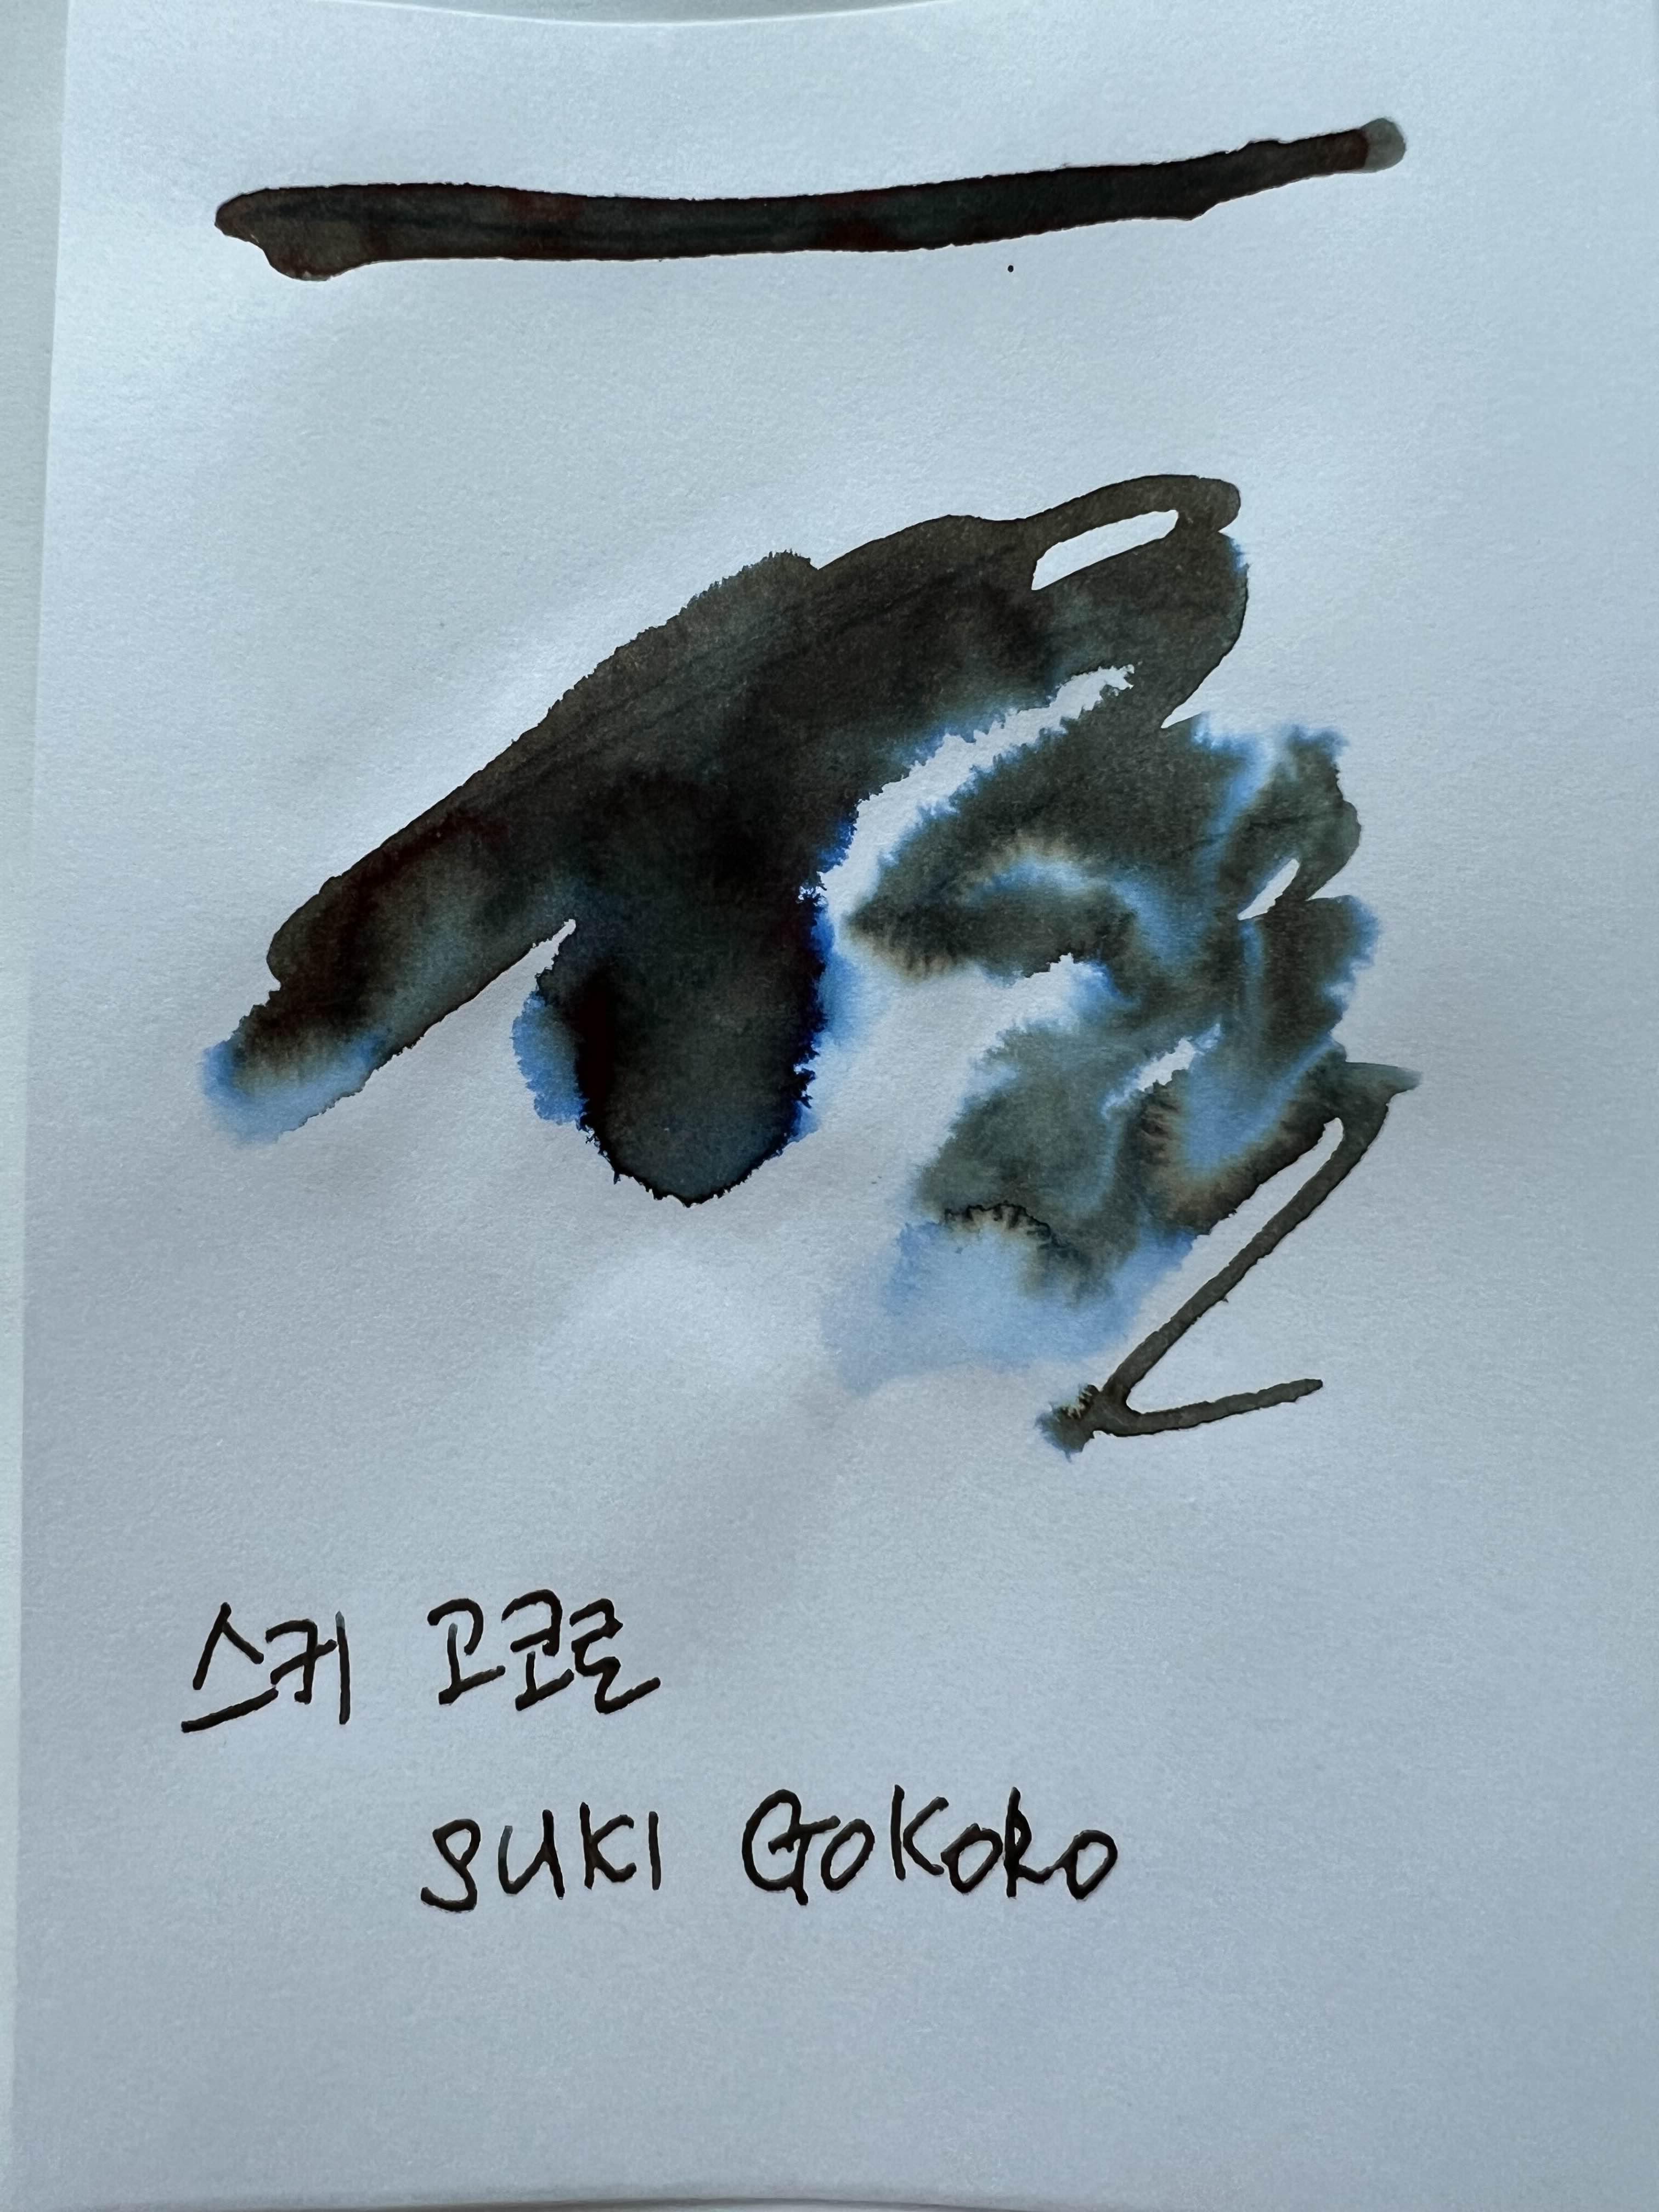 스키 고코로
SUKI GOKORO